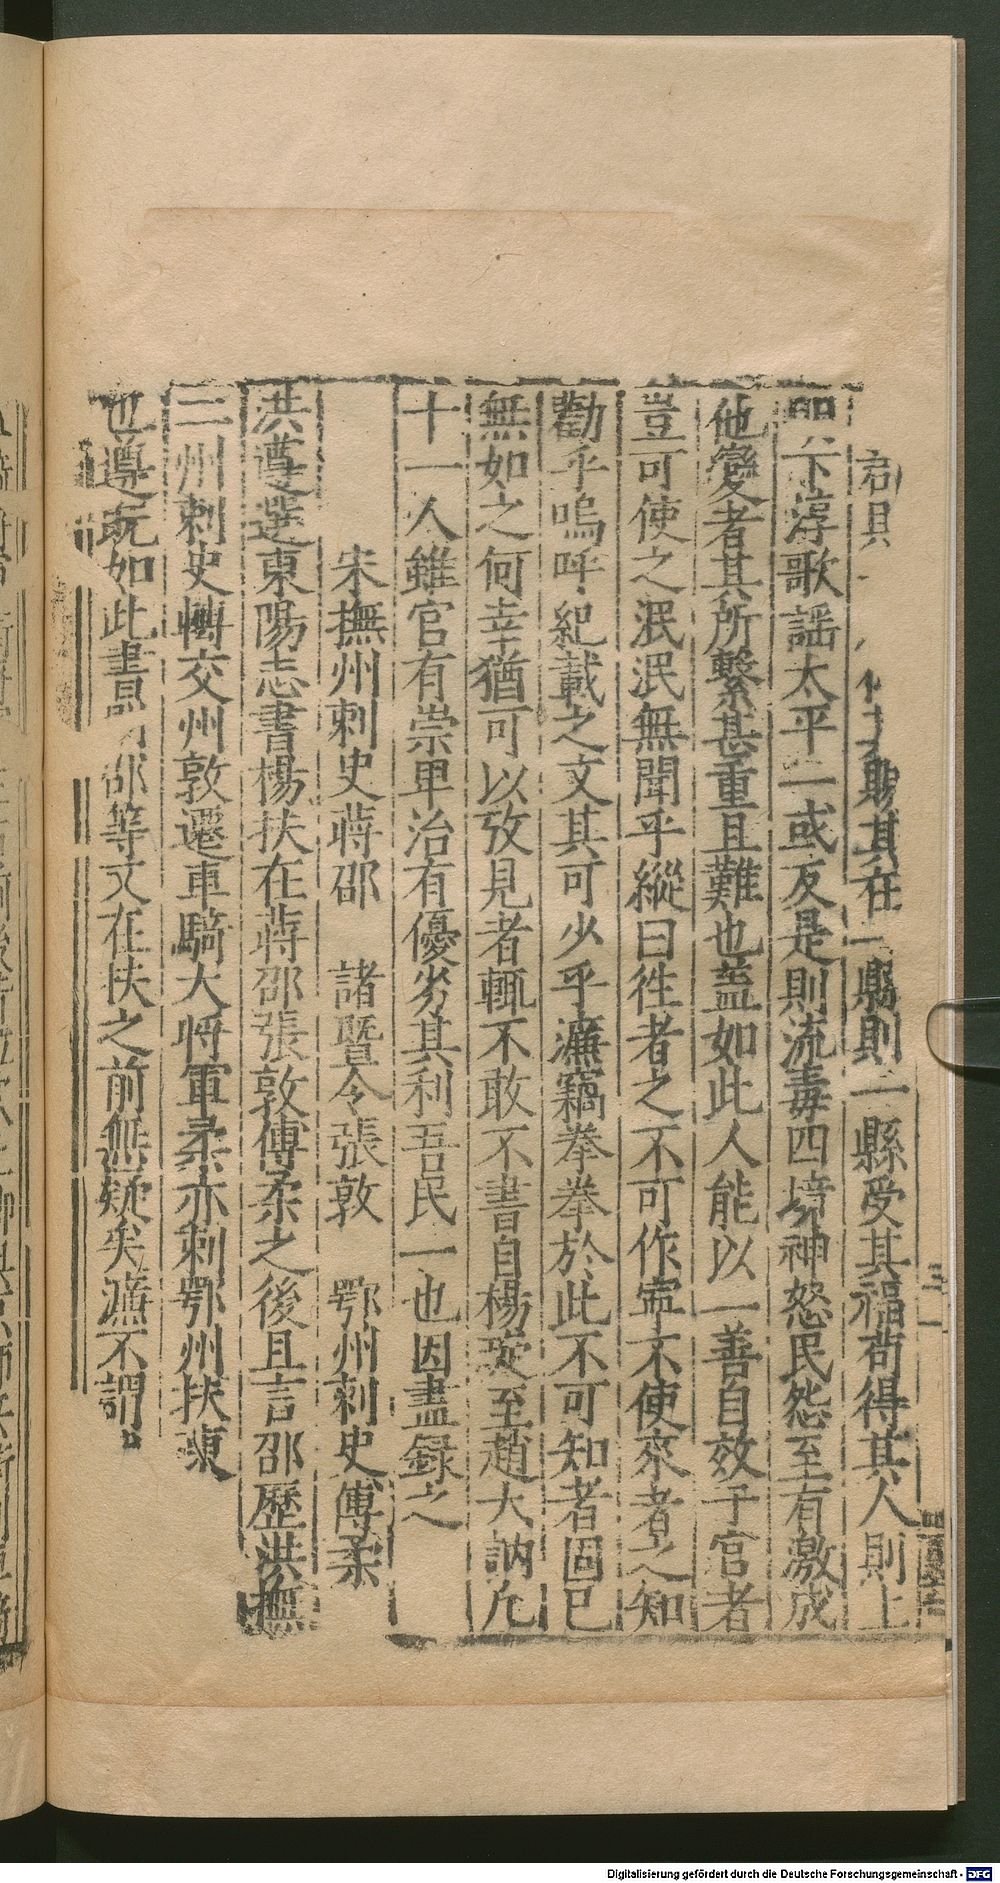 君具其在一縣則一縣受其福苟得其人則上
明下淳歌謡太平一或反是則流毒四境神怒民怨至有激成
他變者其所繫甚重且難也盖如此人能以一善自效于官者
豈可使之泯泯無聞乎縱曰徃者之不可作寜不使來者之知
勸乎嗚呼紀載之文其可少乎濂竊拳拳於此不可知者固已
無如之何幸猶可以攷見者輒不敢不書自楊璇至趙大訥凡
十一人雖官有崇卑治有優劣其利吾民一也因盡録之
宋撫州刺史蔣邵　諸暨令張敦　鄂州刺史傅柔
洪遵選東陽志書楊扶在蔣邵張敦傅柔之後且言邵歷洪撫
二州刺史轉交州敦遷車騎大將軍柔亦刺鄂州扶東
也遵既如此書邵等又在扶之前無疑矣濂不謂
Digitalisierung gefördert durch die Deutsche Forschungsgemeinschaft - DFG